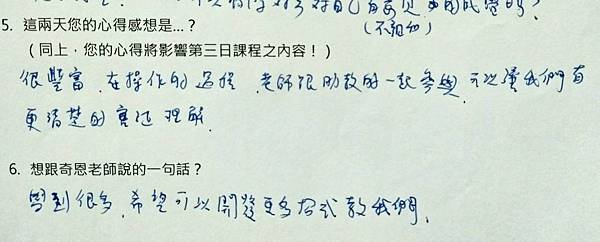 對自己
5. 這兩天您的心得感想是...？ (不親切)
(同上，您的心得將影響第三日課程之內容！)
很豐富，在操作的過程，老師跟助教的一起參與，可以讓我們有
更清楚的實近理解，
6. 想跟奇恩老師說的一句話？
學到很多，希望可以開發更多招式教我們，